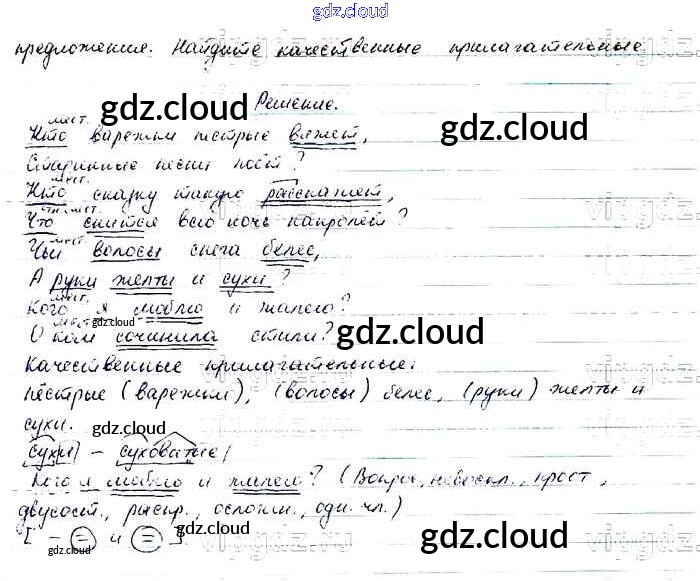 gdz.cloud
предложения. Найдите качественные прилагательные
Решение.
мест.
Кто варежки пестрые вяжет,
Старинные песни поёт?
мест.
Кто сказку такую расскажет,
мест.
Что снится всю ночь напролёт?
мест.
Чьи волосы снега белее,
А руки желты и сухи?
мест.
Кого я люблю и жалею?
мест.
О ком сочинила стихи?
Качественные прилагательные:
пёстрые (варежки), (волосы) белее, (руки) желты и
сухи.
сухи – суховатые
Кого я люблю и жалею? (Вопрос., невоскл., прост.,
двусост., распр., осложн., одн. чл.)
[ – = и = ]
gdz.cloud
gdz.cloud
gdz.cloud
gdz.cloud
gdz.cloud
gdz.cloud
gdz.cloud
gdz.cloud
gdz.cloud